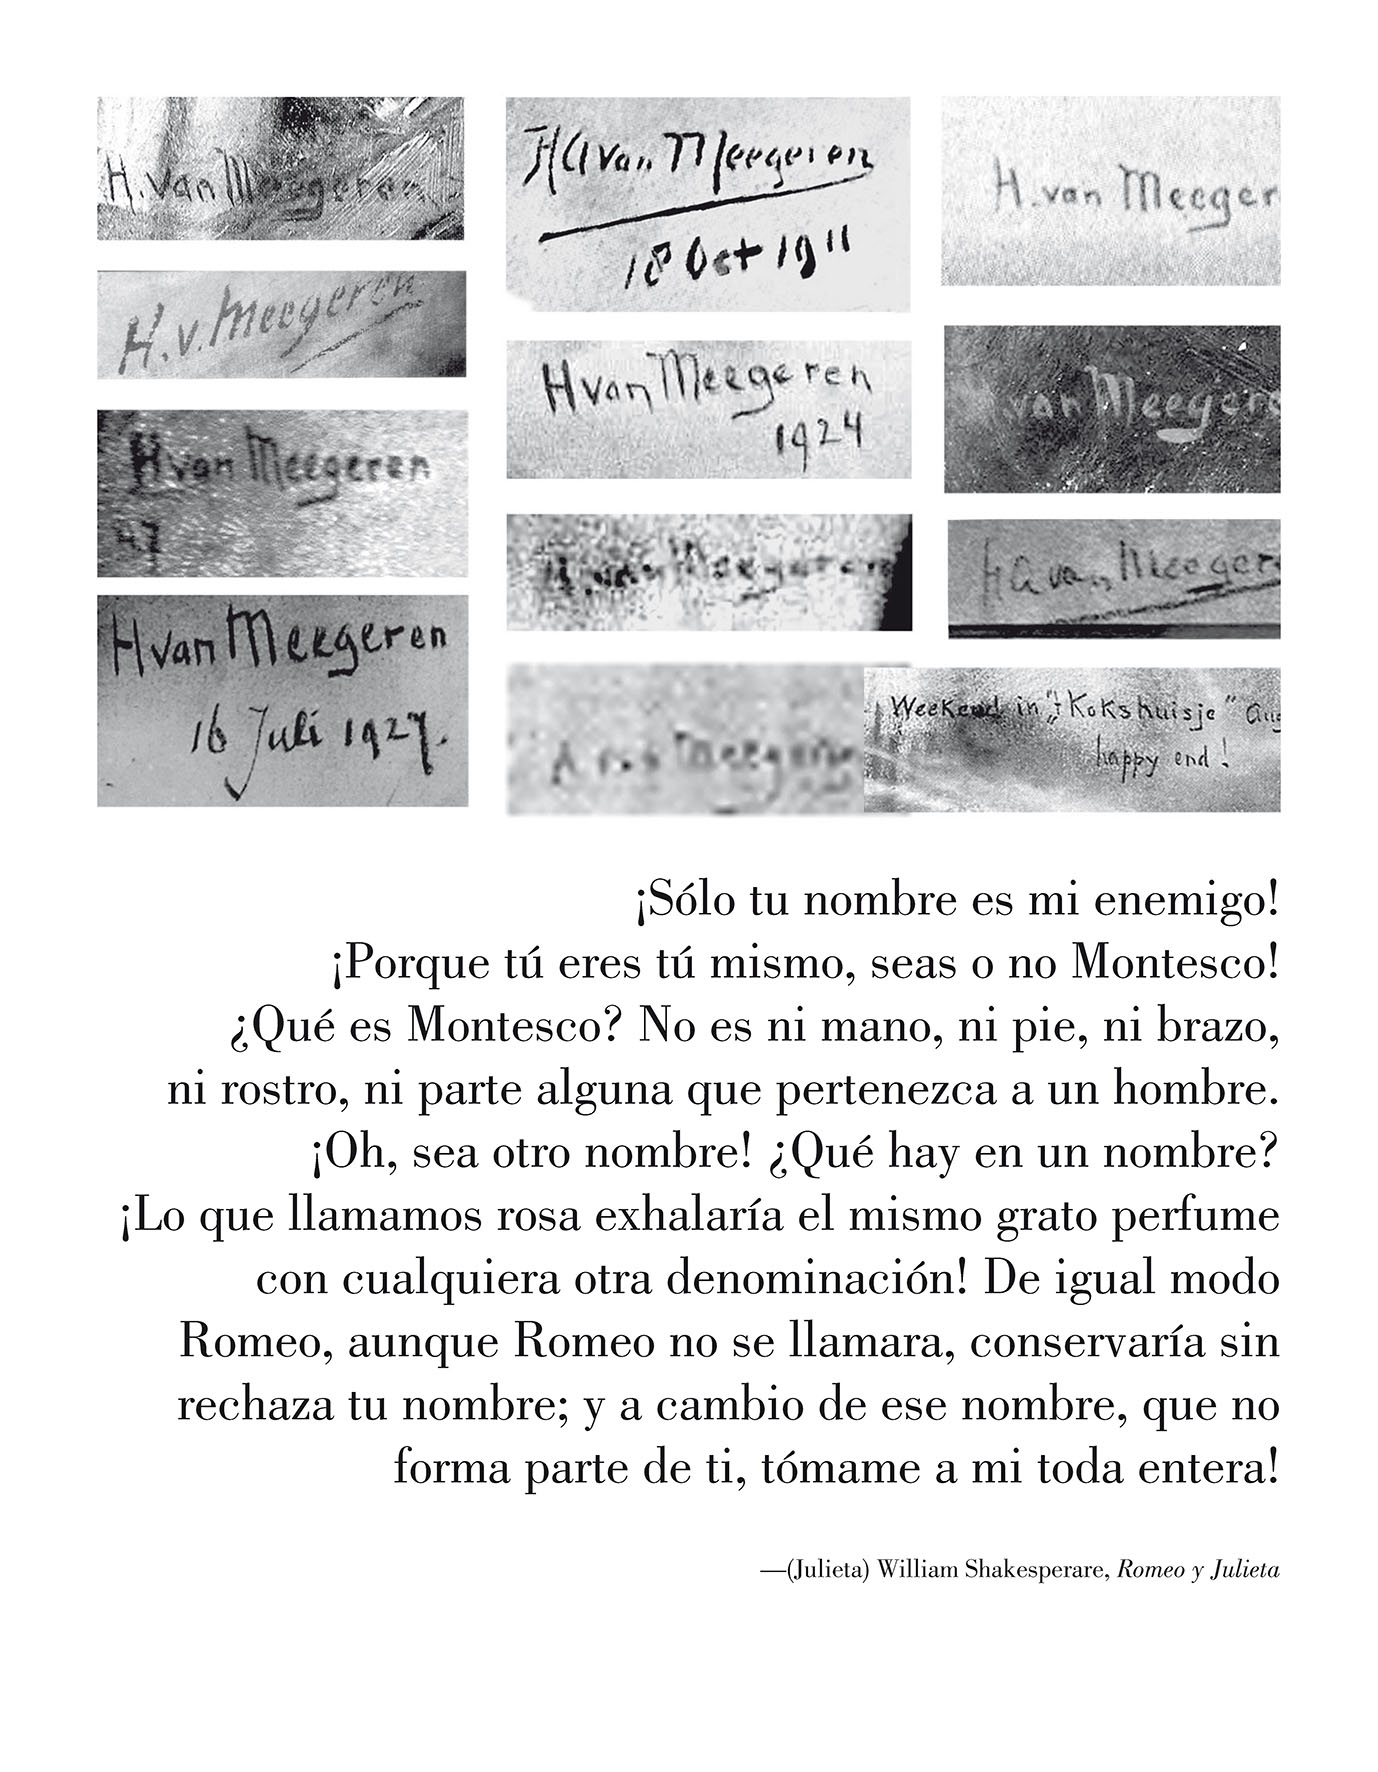 H. van Meegeren
H. v. Meegeren
H van Meegeren
47
H van Meegeren
16 Juli 1927.
HA van Meegeren
18 Oct 1911
H van Meegeren
1924
H. van Meegeren
van Meegeren
H. van Meeger
van Meegere
HA van Meeger
Weekend in "t Kokshuisje" Aug
happy end!
¡Sólo tu nombre es mi enemigo!
¡Porque tú eres tú mismo, seas o no Montesco!
¿Qué es Montesco? No es ni mano, ni pie, ni brazo,
ni rostro, ni parte alguna que pertenezca a un hombre.
¡Oh, sea otro nombre! ¿Qué hay en un nombre?
¡Lo que llamamos rosa exhalaría el mismo grato perfume
con cualquiera otra denominación! De igual modo
Romeo, aunque Romeo no se llamara, conservaría sin
rechaza tu nombre; y a cambio de ese nombre, que no
forma parte de ti, tómame a mi toda entera!
—(Julieta) William Shakesperare, Romeo y Julieta